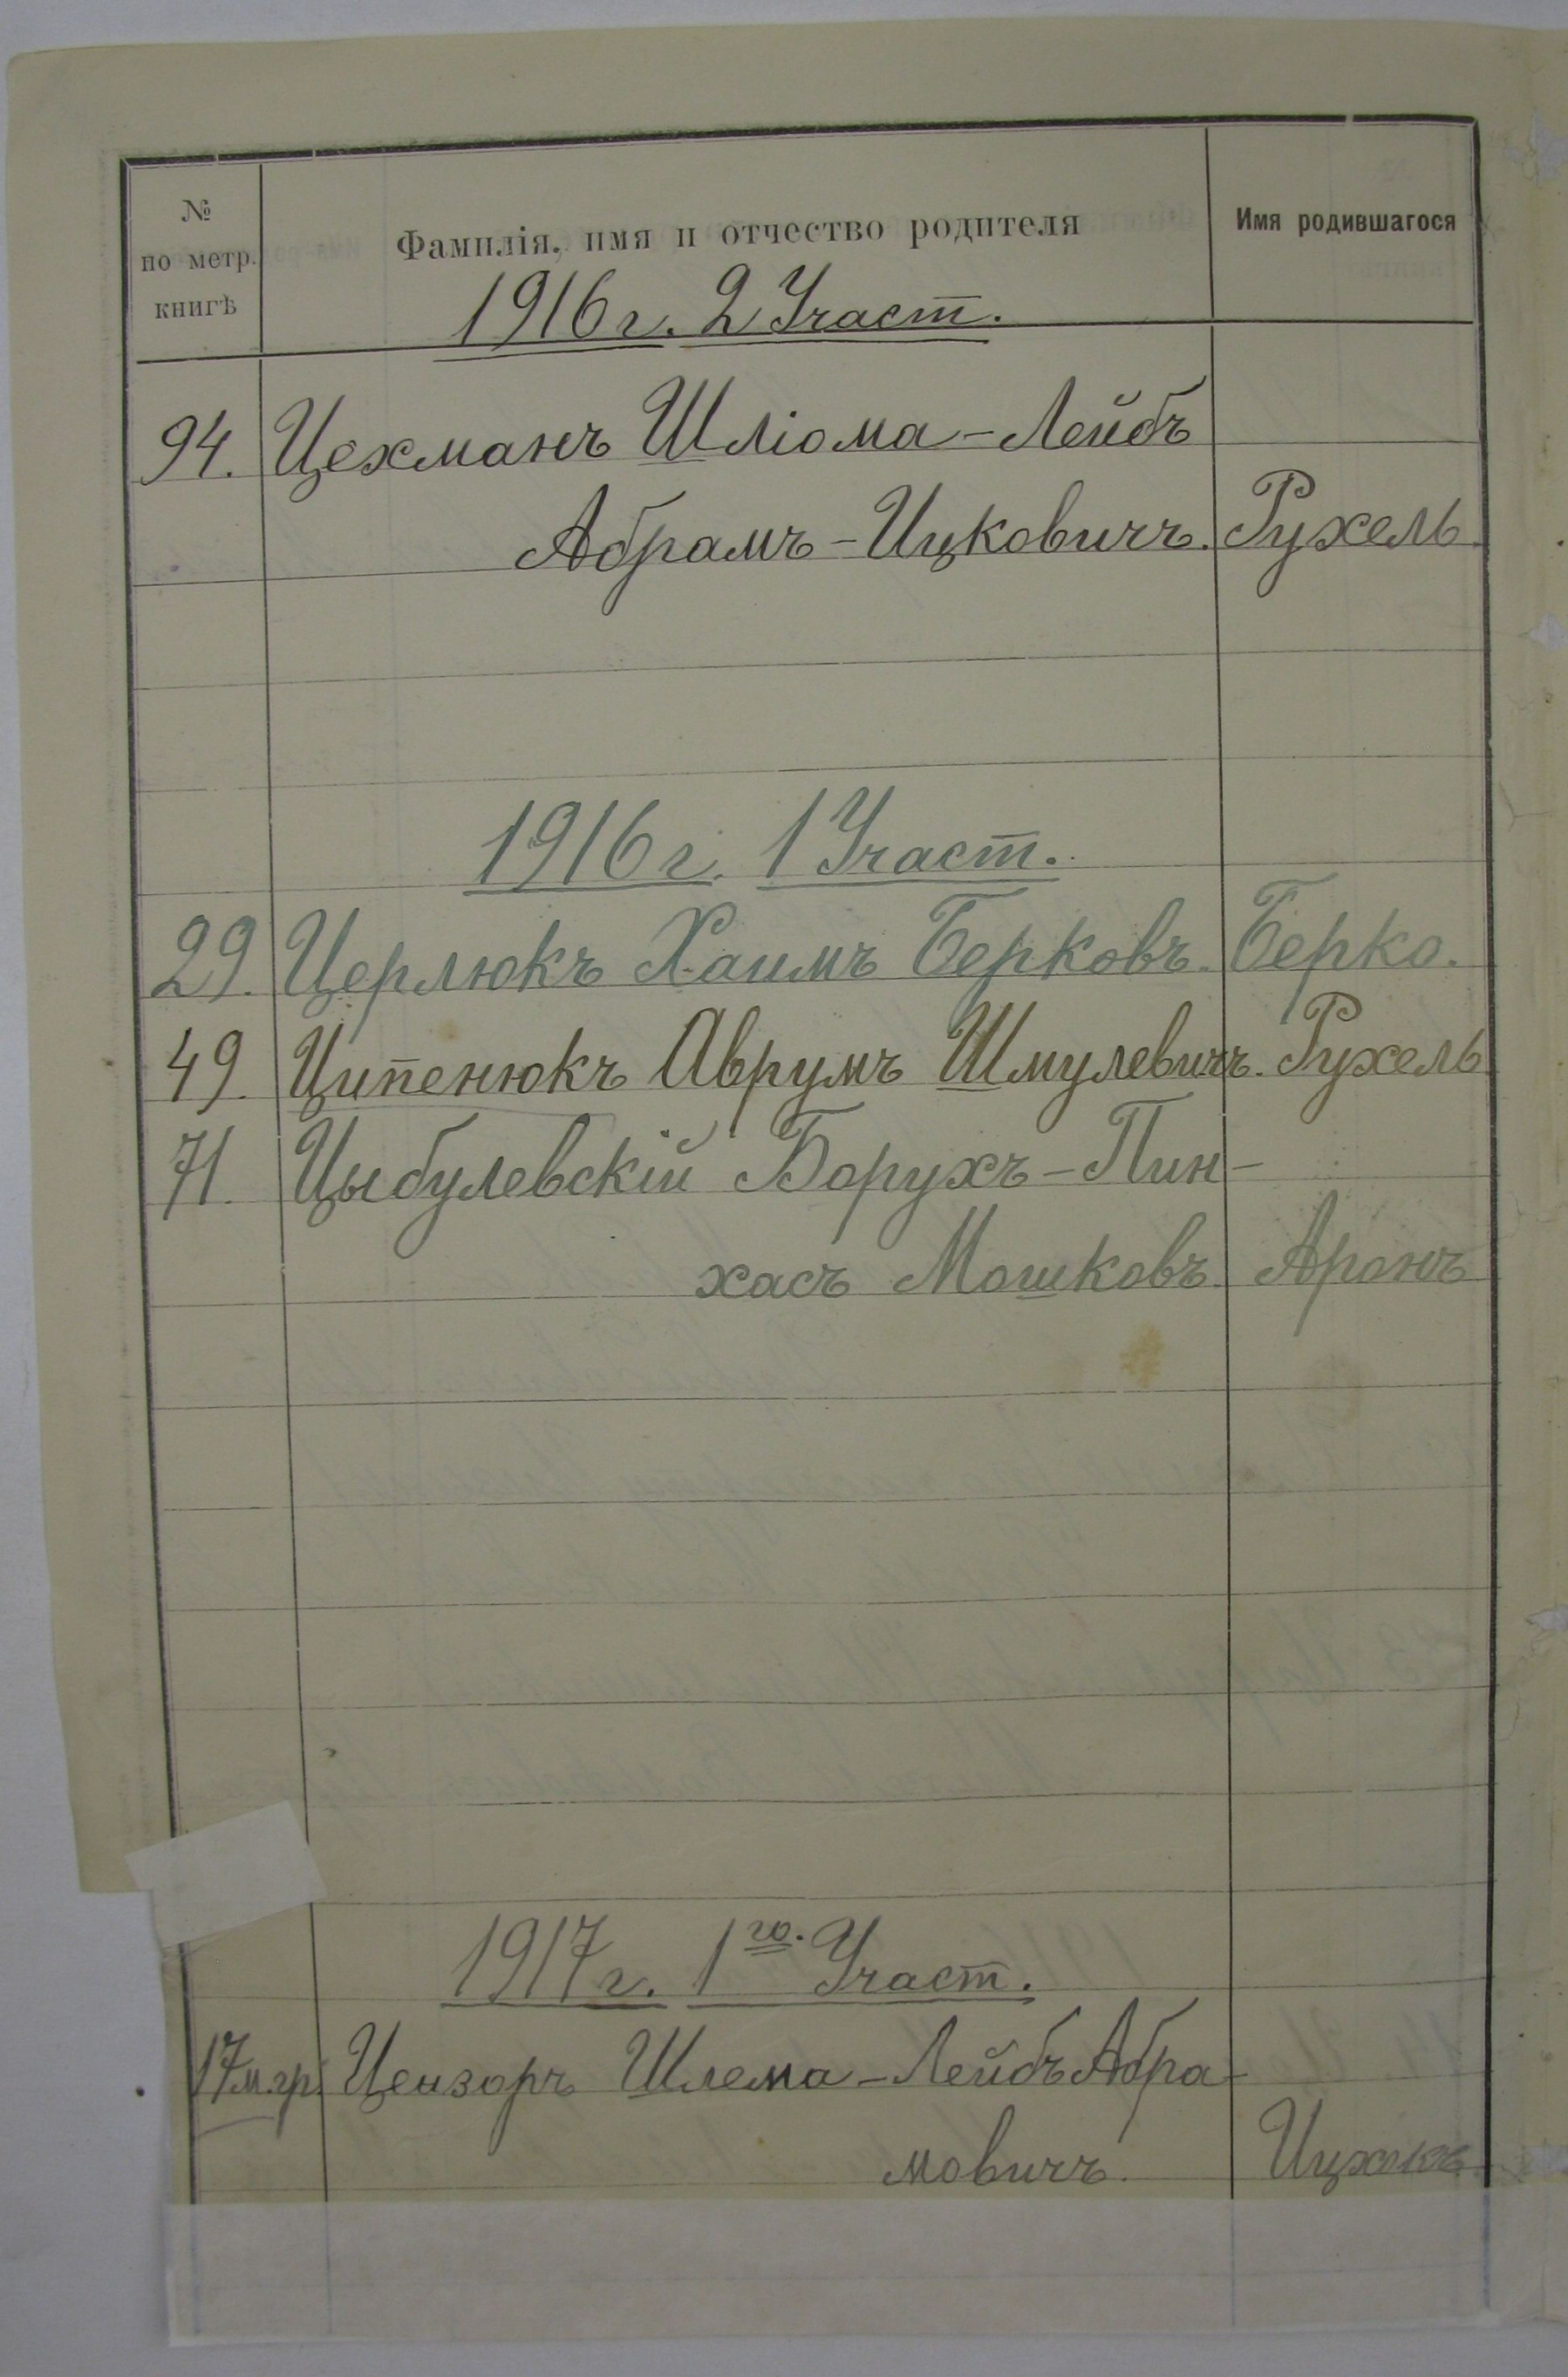 №
по метр.
книгѣ
Фамилія, имя и отчество родителя
Имя родившагося
1916 г. 2 Участ.
94. Цехманъ Шліома-Лейбъ
Абрамъ-Ицковичъ. Рухель
1916 г. 1 Участ.
29. Церлюкъ Хаимъ Берковъ. Берко.
49. Ципенюкъ Аврумъ Шмулевичъ. Рухель
71. Цыбулевскій Борухъ-Пин-
хасъ Мошковъ. Аронъ
1917 г. 1го. Участ.
17 м.гр. Цензоръ Шлема-Лейбъ Абра-
мовичъ. Ицхокъ